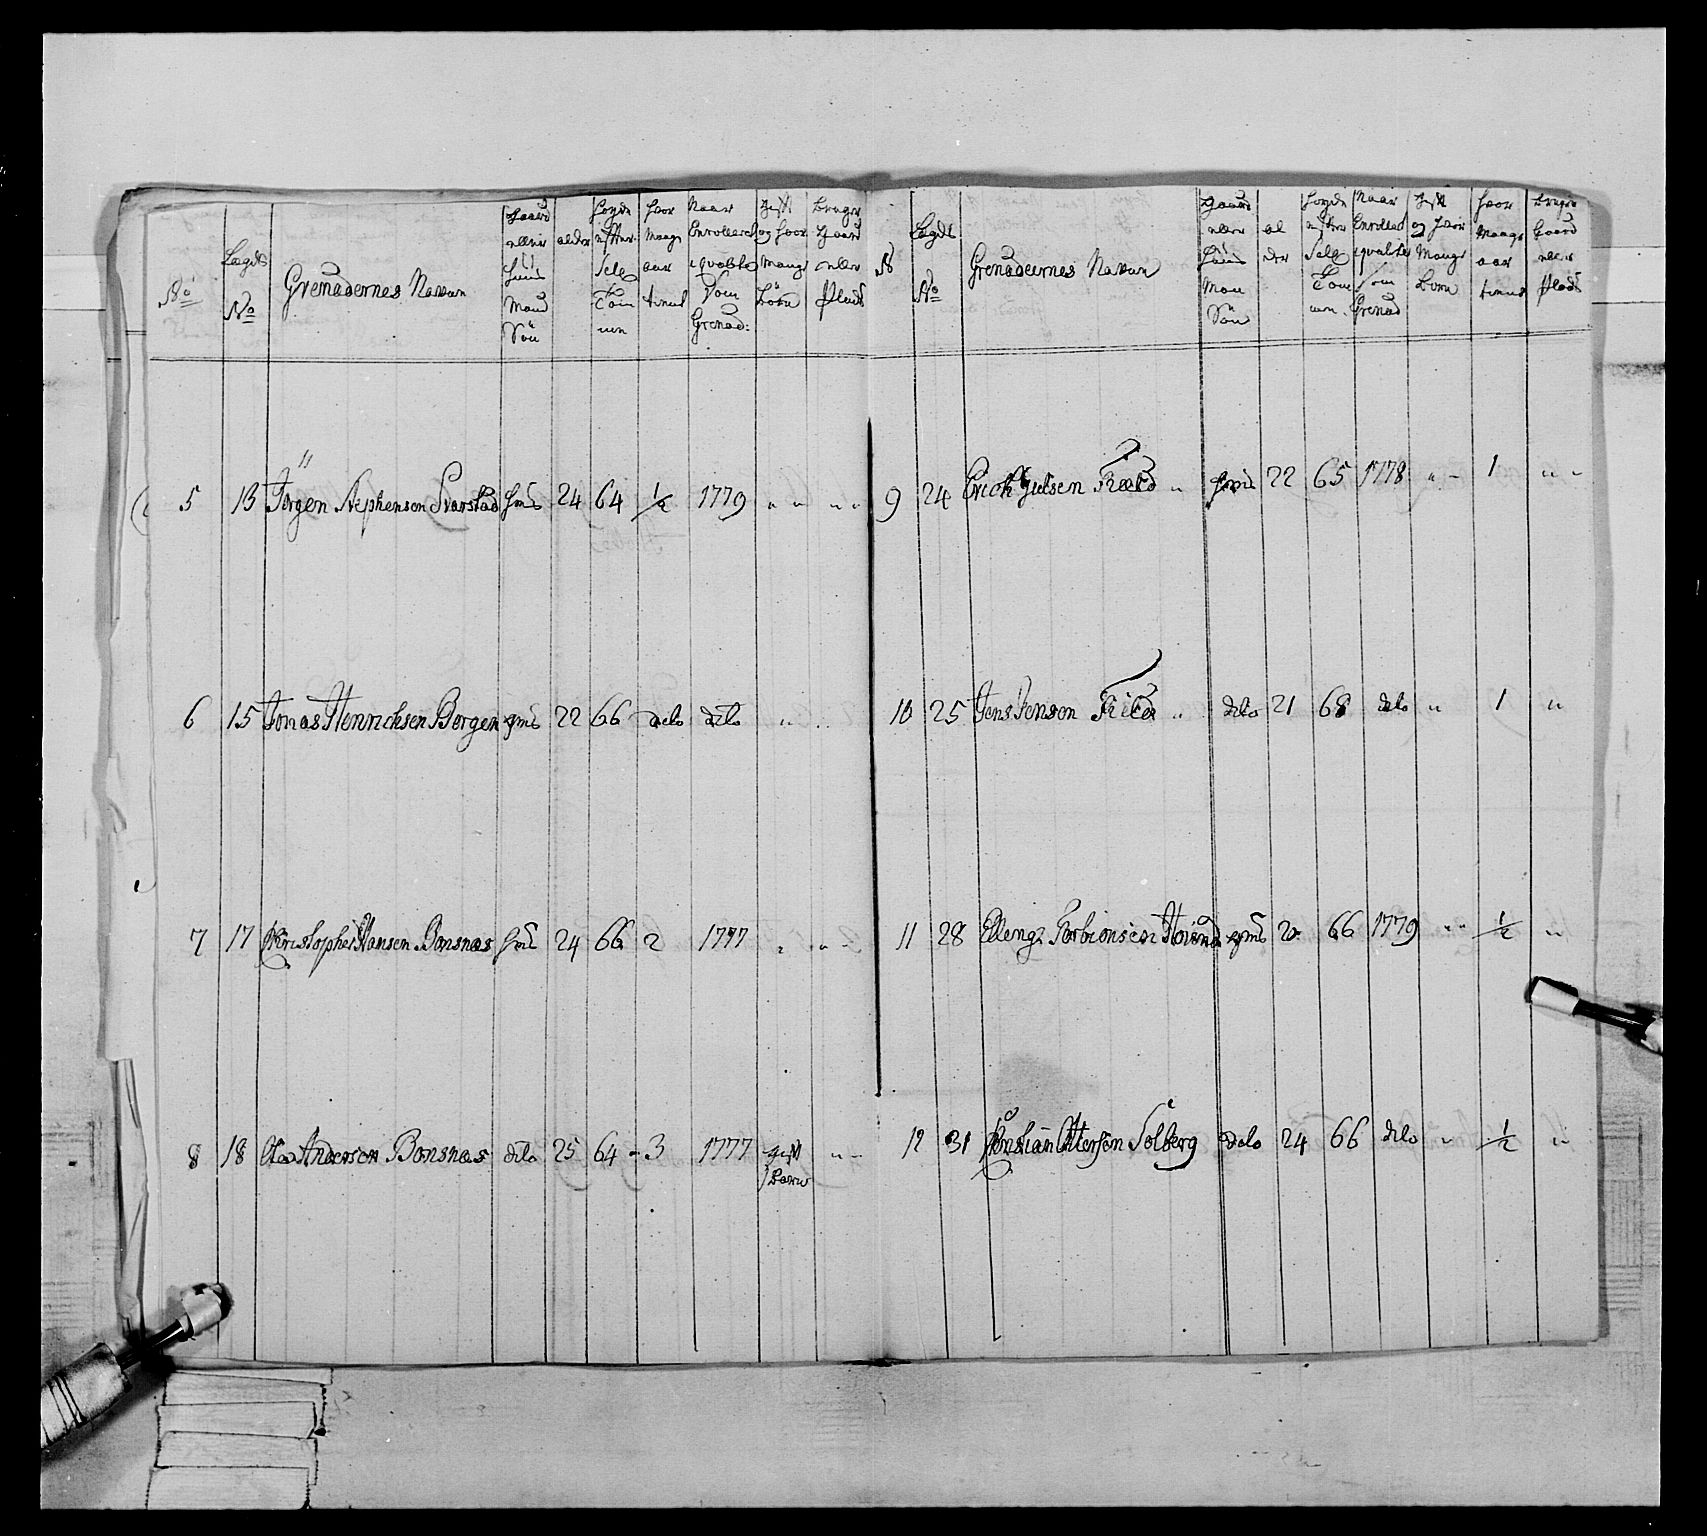 No
Lægds No
Grenaderernes Navn
Gaard eller Huus Mand Søn
alder
Høyde efter Sele Tommen
Hvor Mange aar tient
Naar Enrolleret i qvalitet som Grenad:
Gift og hvor Mange Børn
bruger Gaard eller Plads
5 13 Jørgen Stephensen Svarstad huus 24 64 1/2 1779 " " " "
6 15 Jonas Henrichsen Borgen huus 22 66 dito dito "
7 17 Christopher Hansen Bonsnæs huus 24 66 2 1777 " " "
8 18 Ole Andersen Bonsnæs dito 25 64 - 3 1777 gift " "
1 Barn
N
Lægds No
Grenaderernes Navn
Gaard eller Huus Mand Søn
al der
Høyde efter Sele Tommen
Naar Enrolled i qvalitet som Grenad
Gift og hvor Mange Born
Hvor Mange aar tient
bruger Gaard eller Plads
9 24 Erich Julsen " huus 22 65 1778 " - 1 " "
10 25 Jens Jensen " dito 21 68 dito " 1 "
11 28 Torbionsen huus 20 66 1779 " " 1/2 "
12 31 Christian Solberg dito 24 66 dito " 1/2 "